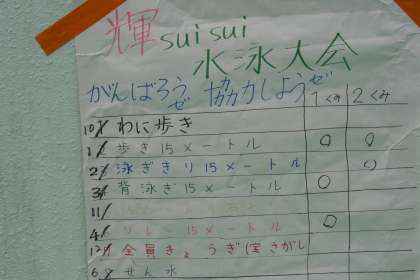 輝 suisui
水泳大会
がんばろうぜ 協力しようぜ
1くみ 2くみ
10 わに歩き
1 歩き15メートル ○ ○
2 泳ぎきり15メートル ○
3 背泳ぎ15メートル ○
11
4 リレー15メートル ○
12 全員きょうぎ(宝さがし
6 せん水